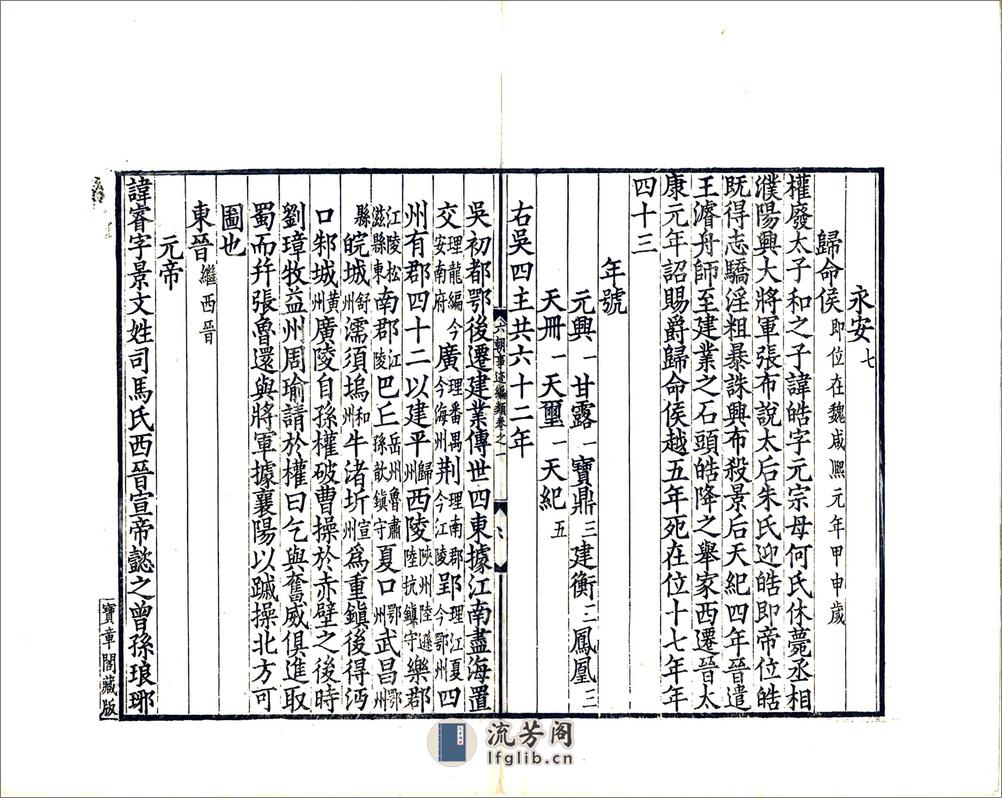 永安七
歸命侯即位在魏咸熙元年甲申歲
權廢太子和之子諱皓字元宗母何氏休薨丞相
濮陽興大將軍張布說太后朱氏迎皓即帝位皓
既得志驕淫粗暴誅興布殺景后天紀四年晉遣
王濬舟師至建業之石頭皓降之舉家西遷晉太
康元年詔賜爵歸命侯越五年死在位十七年年
四十三
年號
元興一甘露一寶鼎三建衡三鳳凰三
天冊一天璽一天紀五
右吳四主共六十二年
六朝事迹編類卷之一 六
吳初都鄂後遷建業傳世四東據江南盡海置
交理龍編今安南府廣理番禺今海州荆理南郡今江陵郢理江夏今鄂州四
州有郡四十二以建平歸州西陵陝州陸遜陸抗鎮守樂郡
江陵松滋縣東南郡江陵巴丘岳州魯肅孫歆鎮守夏口鄂州武昌鄂州
縣皖城舒州濡須塢和州牛渚圻宣州爲重鎮後得沔
口邾城黃州廣陵自孫權破曹操於赤壁之後時
劉璋牧益州周瑜請於權曰乞與奮威俱進取
蜀而幷張魯還與將軍據襄陽以蹴操北方可
圖也
東晉繼西晉
元帝
諱睿字景文姓司馬氏西晉宣帝懿之曾孫琅邪
寶章閣藏版
流芳阁
lfglib.cn